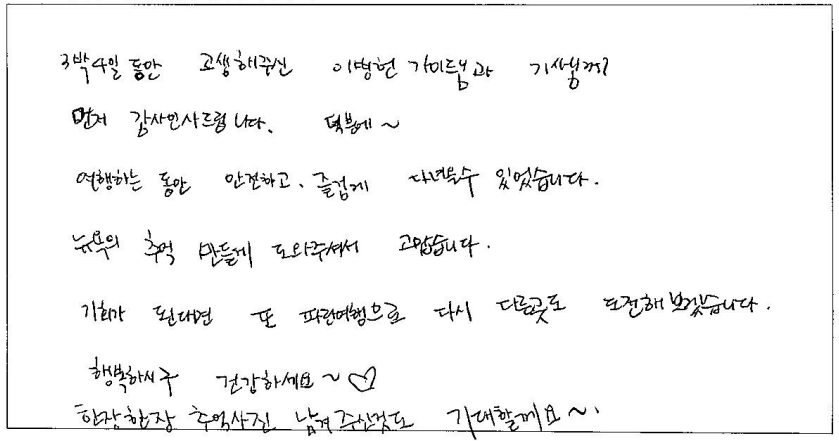 3박4일 동안 고생해주신 이병헌 가이드님과 기사님께
먼저 감사인사드립니다. 덕분에~
여행하는 동안 안전하고, 즐겁게 다녀올수 있었습니다.
뉴욕의 추억 만들게 도와주셔서 고맙습니다.
기회가 된다면 또 파란여행으로 다시 다른곳도 도전해보겠습니다.
행복하시구 건강하세요~♡
한장한장 추억사진 남겨주신것도 기대할께요~.